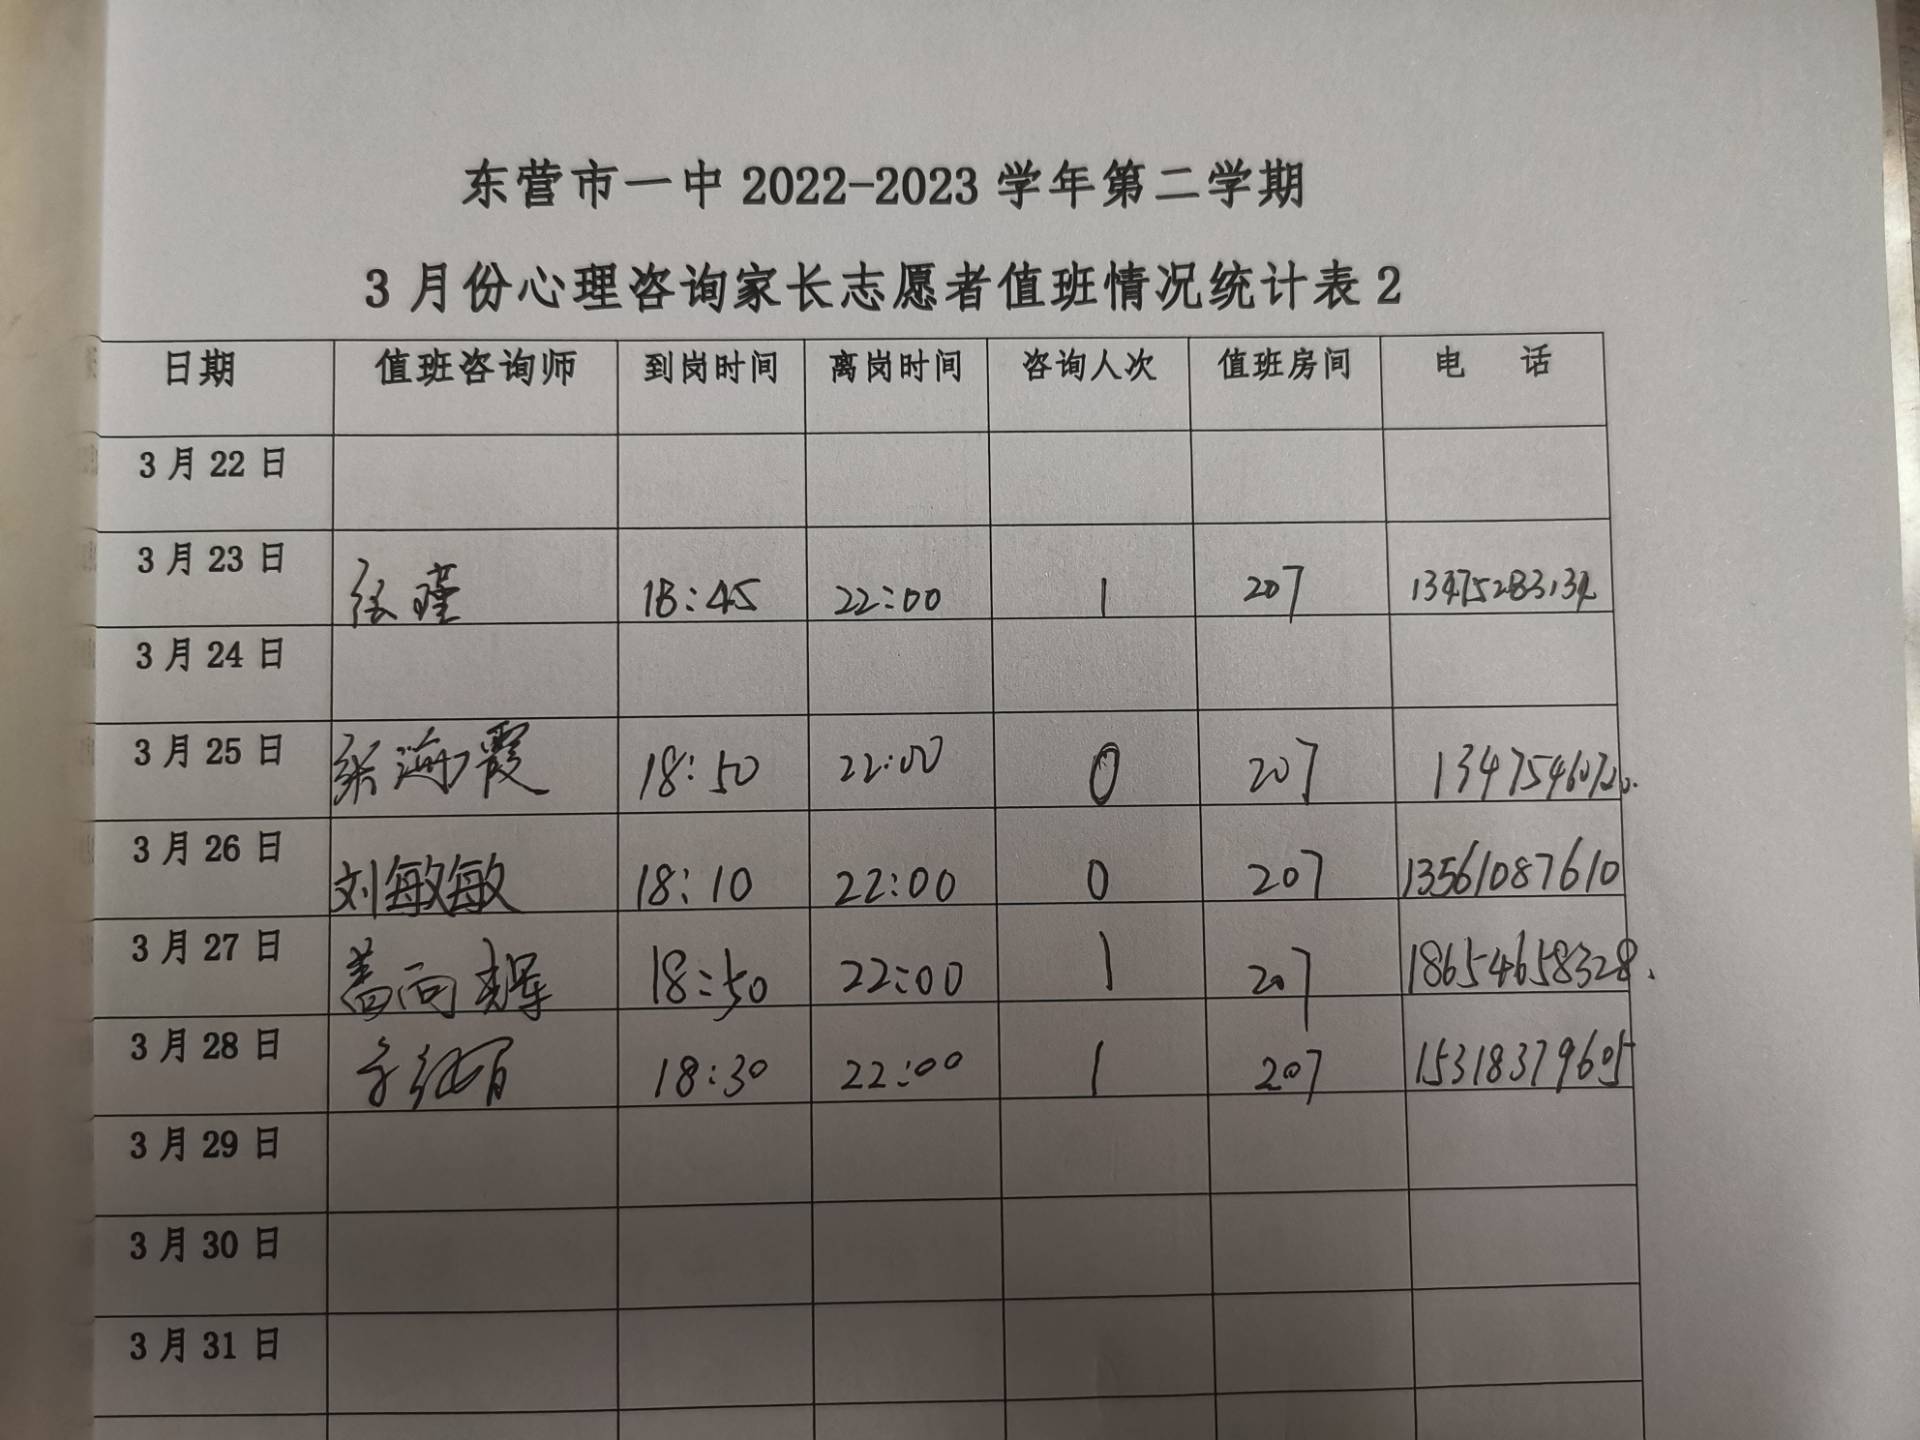 东营市一中 2022-2023 学年第二学期
3 月份心理咨询家长志愿者值班情况统计表 2
日期 值班咨询师 到岗时间 离岗时间 咨询人次 值班房间 电 话
3 月 22 日
3 月 23 日 瑾 18:45 22:00 1 207
3 月 24 日
3 月 25 日 张海霞 18:50 22:00 0 207
3 月 26 日 刘敏敏 18:10 22:00 0 207 13561087610
3 月 27 日 盖向辉 18:50 22:00 1 207 18654658328.
3 月 28 日 18:30 22:00 1 207 15318379605
3 月 29 日
3 月 30 日
3 月 31 日